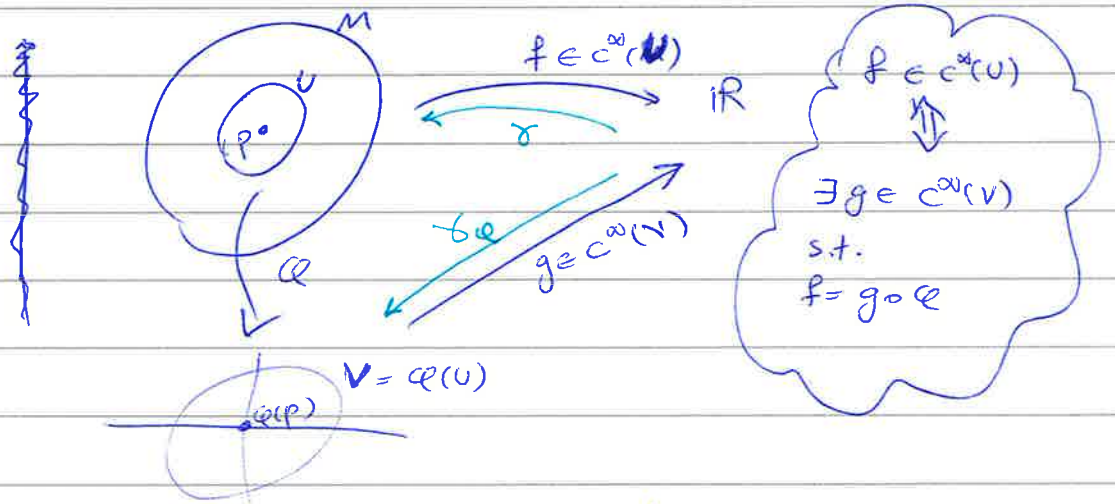 M
U
p
f ∈ C^∞(U)
ℝ
γ
γ_φ
g ∈ C^∞(V)
φ
V = φ(U)
φ(p)
f ∈ C^∞(U)
⇕
∃ g ∈ C^∞(V)
s.t.
f = g ∘ φ